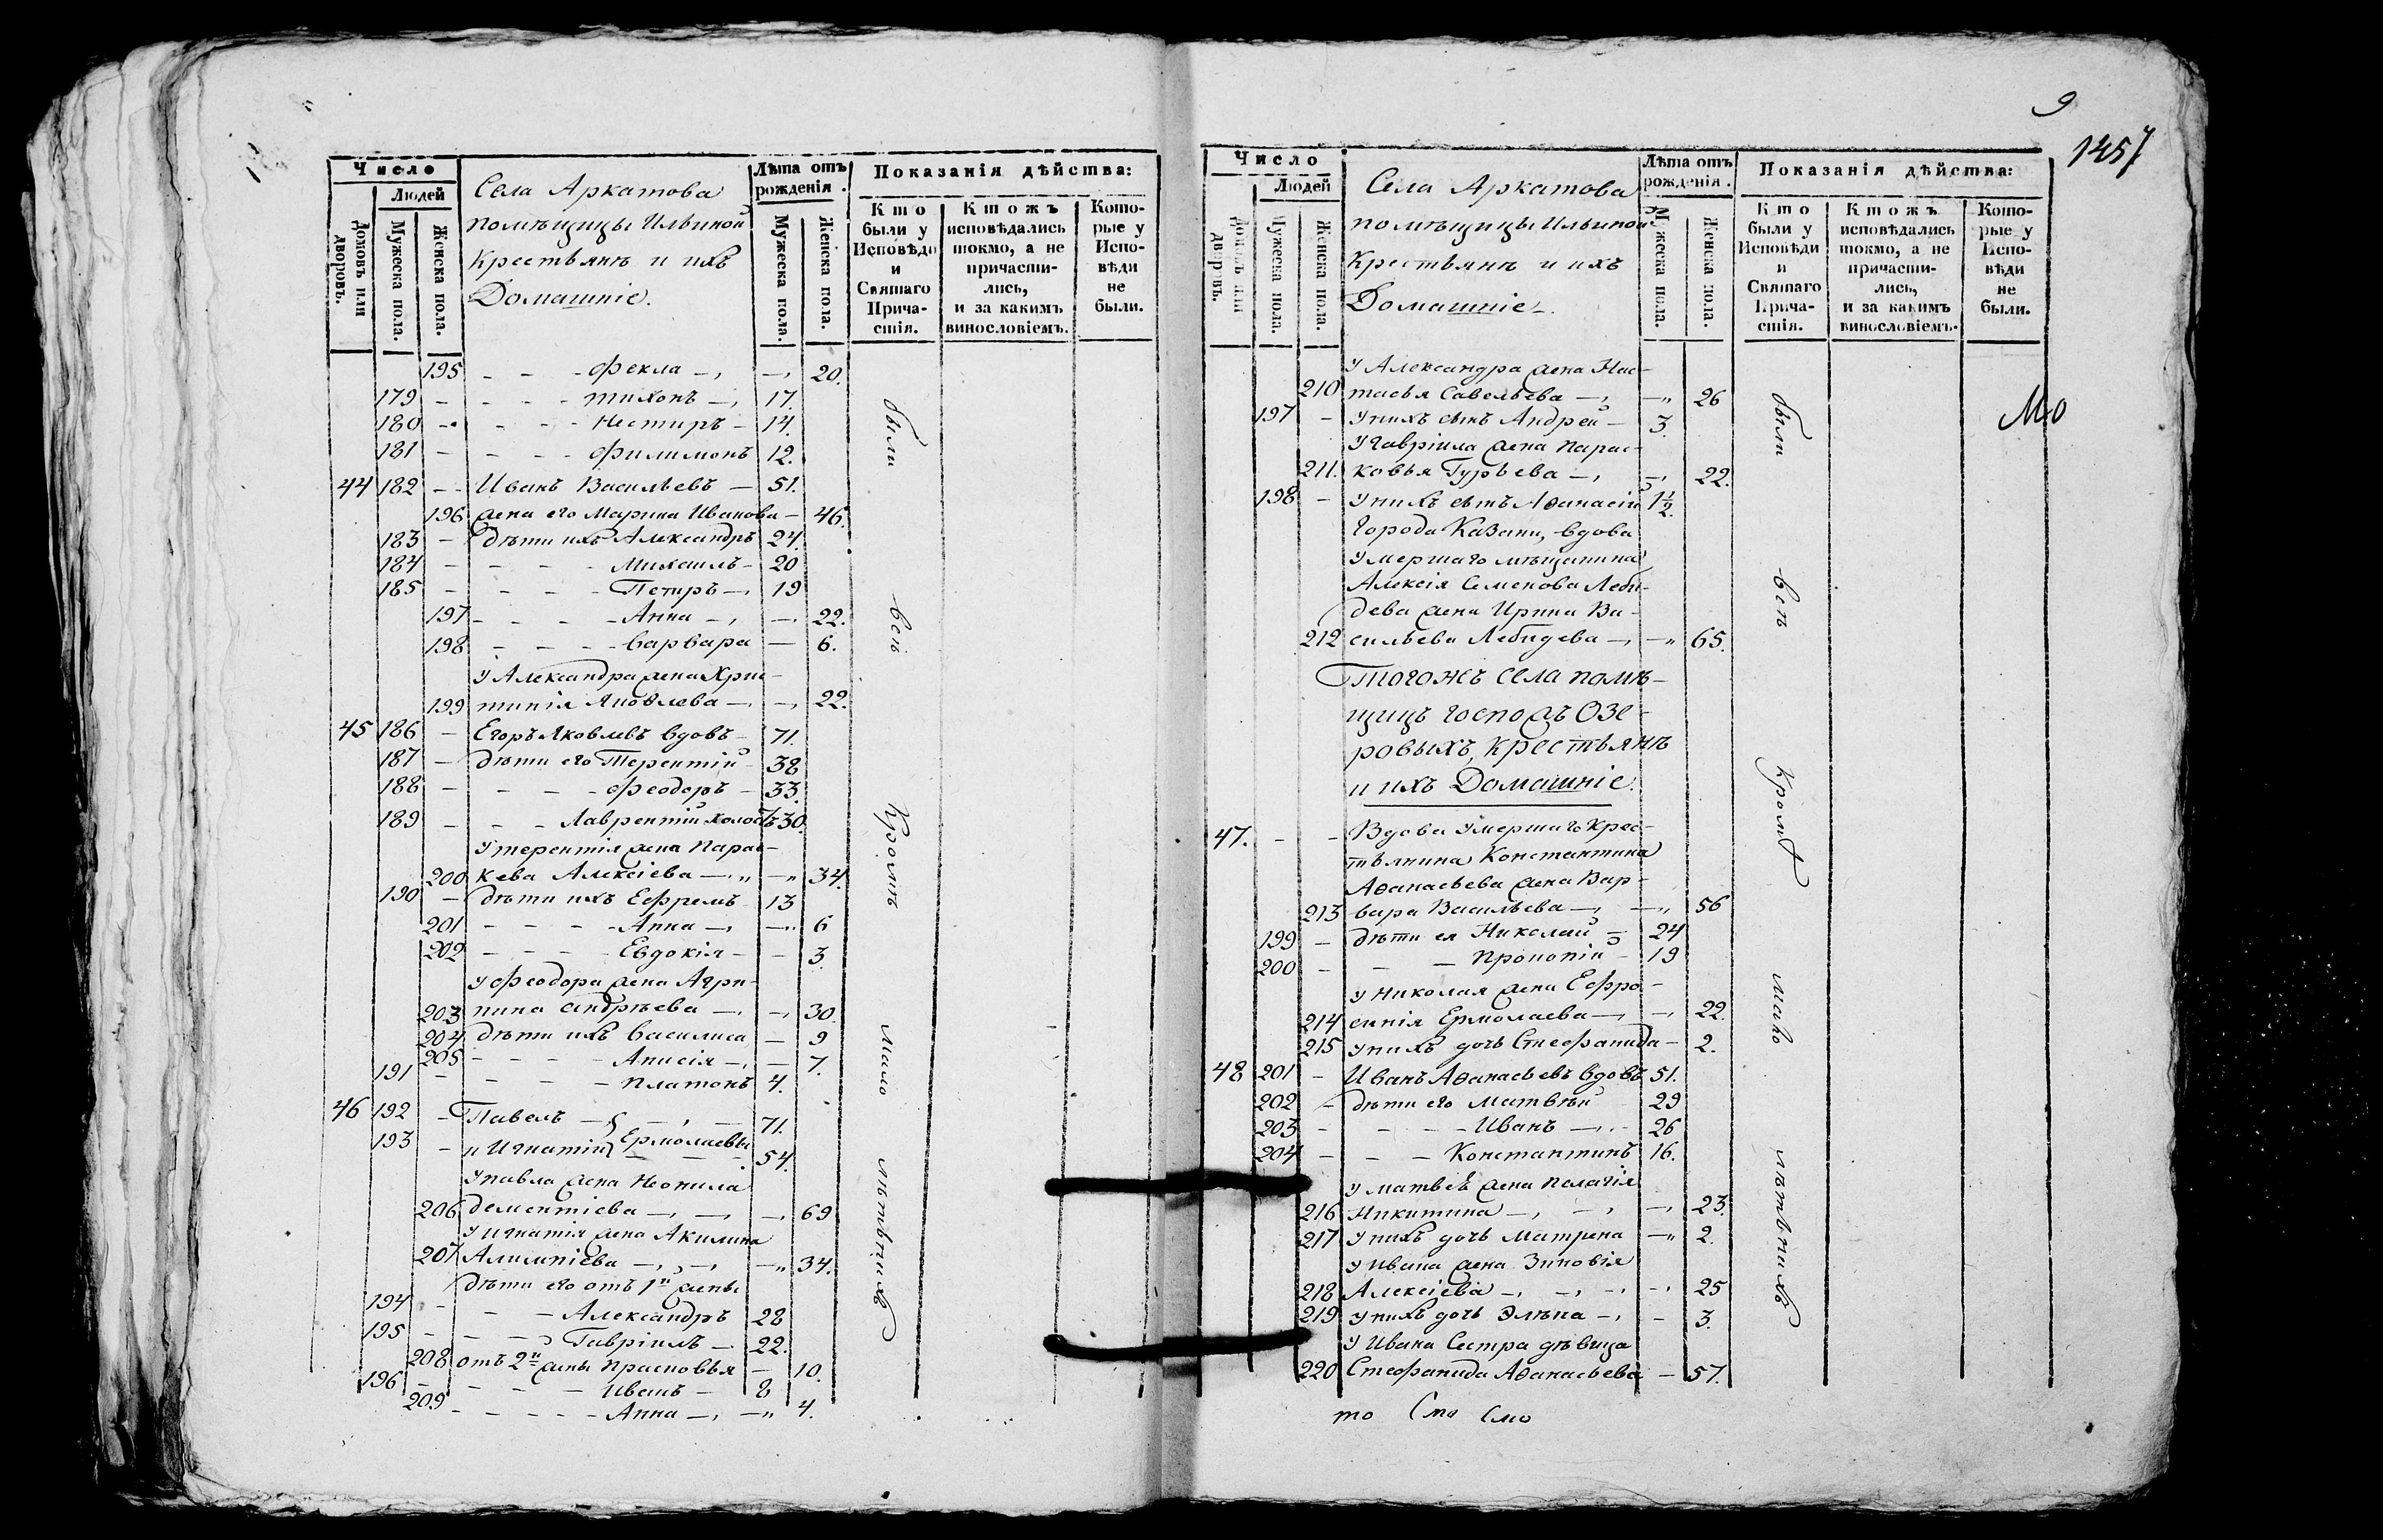 Число
Людей
Домовъ или дворовъ.
Мужеска пола.
Женска пола.
Села Аркатова
помѣщицы Ильиной
Крестьянъ и ихъ
Домашніе.
Лѣта отъ рожденія.
Мужеска пола.
Женска пола.
Показанія дѣйства:
Кто были у Исповѣди и Святаго Причастія.
Ктожъ исповѣдались токмо, а не причастились, и за какимъ винословіемъ.
Которые у Исповѣди не были.
195 - - - Фекла —, —, 20.
179 - - - - Тихонъ —, 17.
180 - - - - Нестиръ - 14.
181 - - - - Филимонъ 12.
44 182 - - Иванъ Васильевъ — 51.
196 жена его Марина Иванова - 46.
183 - Дѣти ихъ Александръ 24.
184 - - - - Михаилъ - 20
185 - - - - Петръ —, 19
197 - - - - Анна —, —, 22.
198 - - - - Варвара — 6.
у Александра жена Хрис-
199 тинія Яковлева —, —, 22.
45 186 - Егоръ Яковлевъ вдовъ - 71.
187 - дѣти его Терентій 38
188 - - - - Феодоръ - 33.
189 - - - Лаврентій холостъ 30.
у терентія жена Парас-
200 кева Алексіева —,, —,, 34.
190 - дѣти ихъ Ефремъ 13
201 - - - - Анна —, —,, 6
202 - - - - Евдокія - - 3.
у Феодора жена Агри-
203 пина Андрѣева —, —, 30.
204 дѣти ихъ Василиса — 9
205 - - - - Анисія —, — 7.
191 - - - - Платонъ 4.
46 192 - Павелъ — — , — 71.
193 - и Игнатій Ермолаевы 54.
у павла жена Неонила
206 Дементіева —, —, —, 69
у игнатія жена Акилина
207 Алимпіева —, —, —,, 34.
дѣти его отъ 1й жены
194 - - - Александръ 28
195 - - - Гавріилъ — 22.
208 отъ 2й жены Прасковья — 10.
196 - - - - Иванъ - 8
209 - - - - - Анна —, —,, 4.
были всѣ Кромѣ мало лѣтьнихъ
9
1457
Число
Людей
Домовъ или дворовъ.
Мужеска пола.
Женска пола.
Села Аркатова
помѣщицы Ильиной
Крестьянъ и ихъ
Домашніе.
Лѣта отъ рожденія.
Мужеска пола.
Женска пола.
Показанія дѣйства:
Кто были у Исповѣди и Святаго Причастія.
Ктожъ исповѣдались токмо, а не причастились, и за какимъ винословіемъ.
Которые у Исповѣди не были.
у Александра жена Нас-
210 тасья Савельева —, —,, 26
197 - у нихъ сынъ Андрей — 3.
у Гавріила жена Парас-
211. ковья Гурьева —, —, 22.
198 - у нихъ сынъ Аѳанасій 1½.
Города Казани, вдова
умершаго мѣщанина
Алексія Семенова Лебе-
дева жена Ирина Ва-
212 сильева Лебедева —, —,, 65.
Тогожъ села помѣ-
щицъ Господъ Озе-
ровыхъ, крестьянъ
и ихъ Домашніе.
47. - - Вдова умершаго Крес-
тьянина Константина
Аѳанасьева жена Вар-
213 вара Васильева —, —,, 56
199 - дѣти ея Николай — 24
200 - - — Прокопій - 19
у Николая жена Ефро-
214 синія Ермолаева —, —, 22.
215 у нихъ дочь Стефанида — 2.
48 201 - Иванъ Аѳанасьевъ вдовъ 51.
202 - дѣти его Матвѣй 29
203 - - - - Иванъ —, - 26
204 - - — Константинъ 16.
у матвѣя жена Пелагія
216 Никитина —, —, —, 23.
217 у нихъ дочь Матрена —,, 2.
у Ивана жена Зиновія
218 Алексіева —, —, —, —, 25
219 у нихъ дочь Элѣна —, — 3.
у Ивана Сестра дѣвица
220 Стефанида Аѳанасьева — 57.
были всѣ Кромѣ мало лѣтьнихъ
то Сто Смо